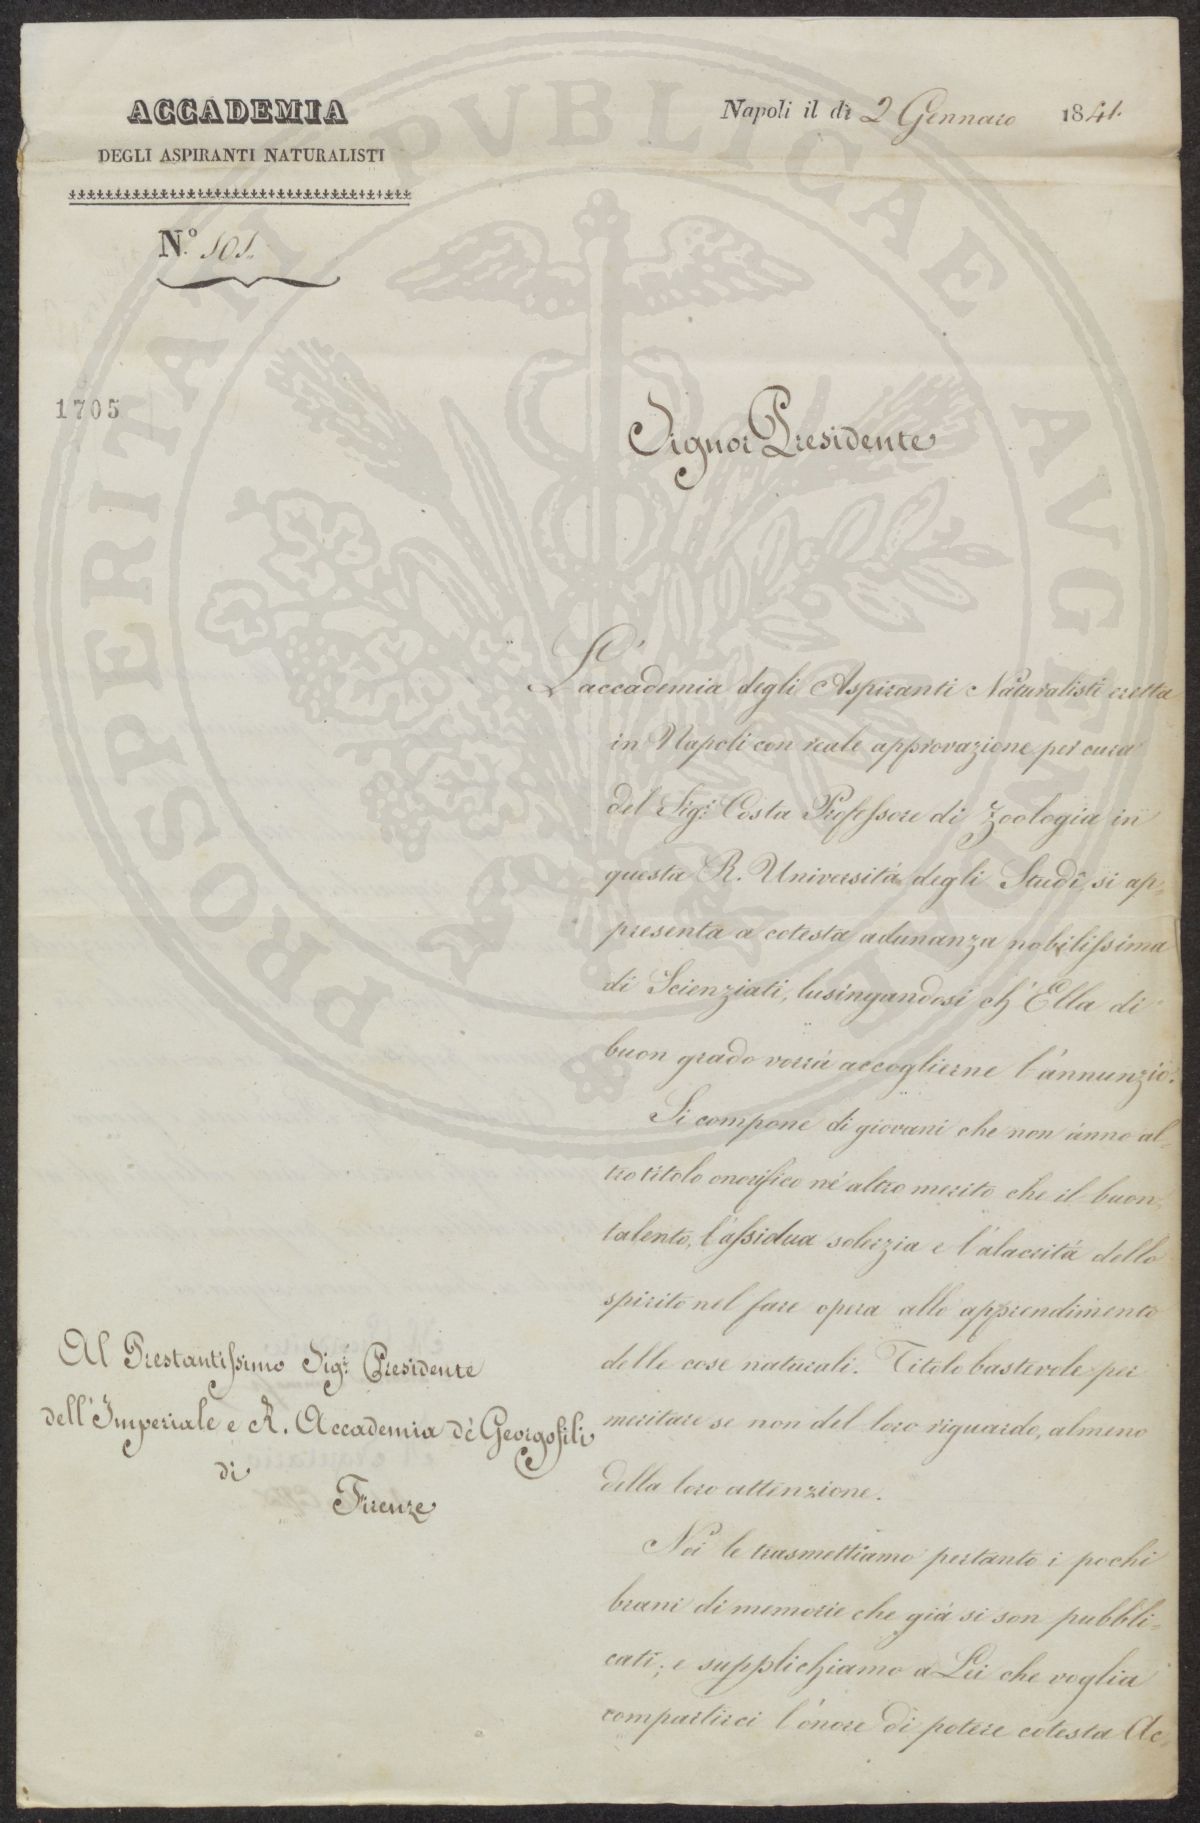 ACCADEMIA
DEGLI ASPIRANTI NATURALISTI
Napoli il dì 2 Gennaro 1841.
N.° 101.
1705
Signor Presidente
L'accademia degli Aspiranti Naturalisti eretta
in Napoli con reale approvazione per cura
del Sig.r Costa Professore di Zoologia in
questa R. Università degli Studî, si ap-
presenta a cotesta adunanza nobilissima
di Scienziati, lusingandosi ch'Ella di
buon grado vorrà accoglierne l'annunzio.
Si compone di giovani che non ànno al-
tro titolo onorifico nè altro merito che il buon
talento, l'assidua solerzia e l'alacrità dello
spirito nel fare opera allo apprendimento
delle cose naturali. Titolo bastevole per
meritare se non del loro riguardo, almeno
della loro attenzione.
Noi le trasmettiamo pertanto i pochi
brani di memorie che già si son pubbli-
cati; e supplichiamo a Lei che voglia
compartirci l'onore di potere cotesta Ac-
Al Prestantissimo Sig.r Presidente
dell'Imperiale e R. Accademia de' Georgofili
di
Firenze
PROSPERITATI PVBLICAE AVGENDAE